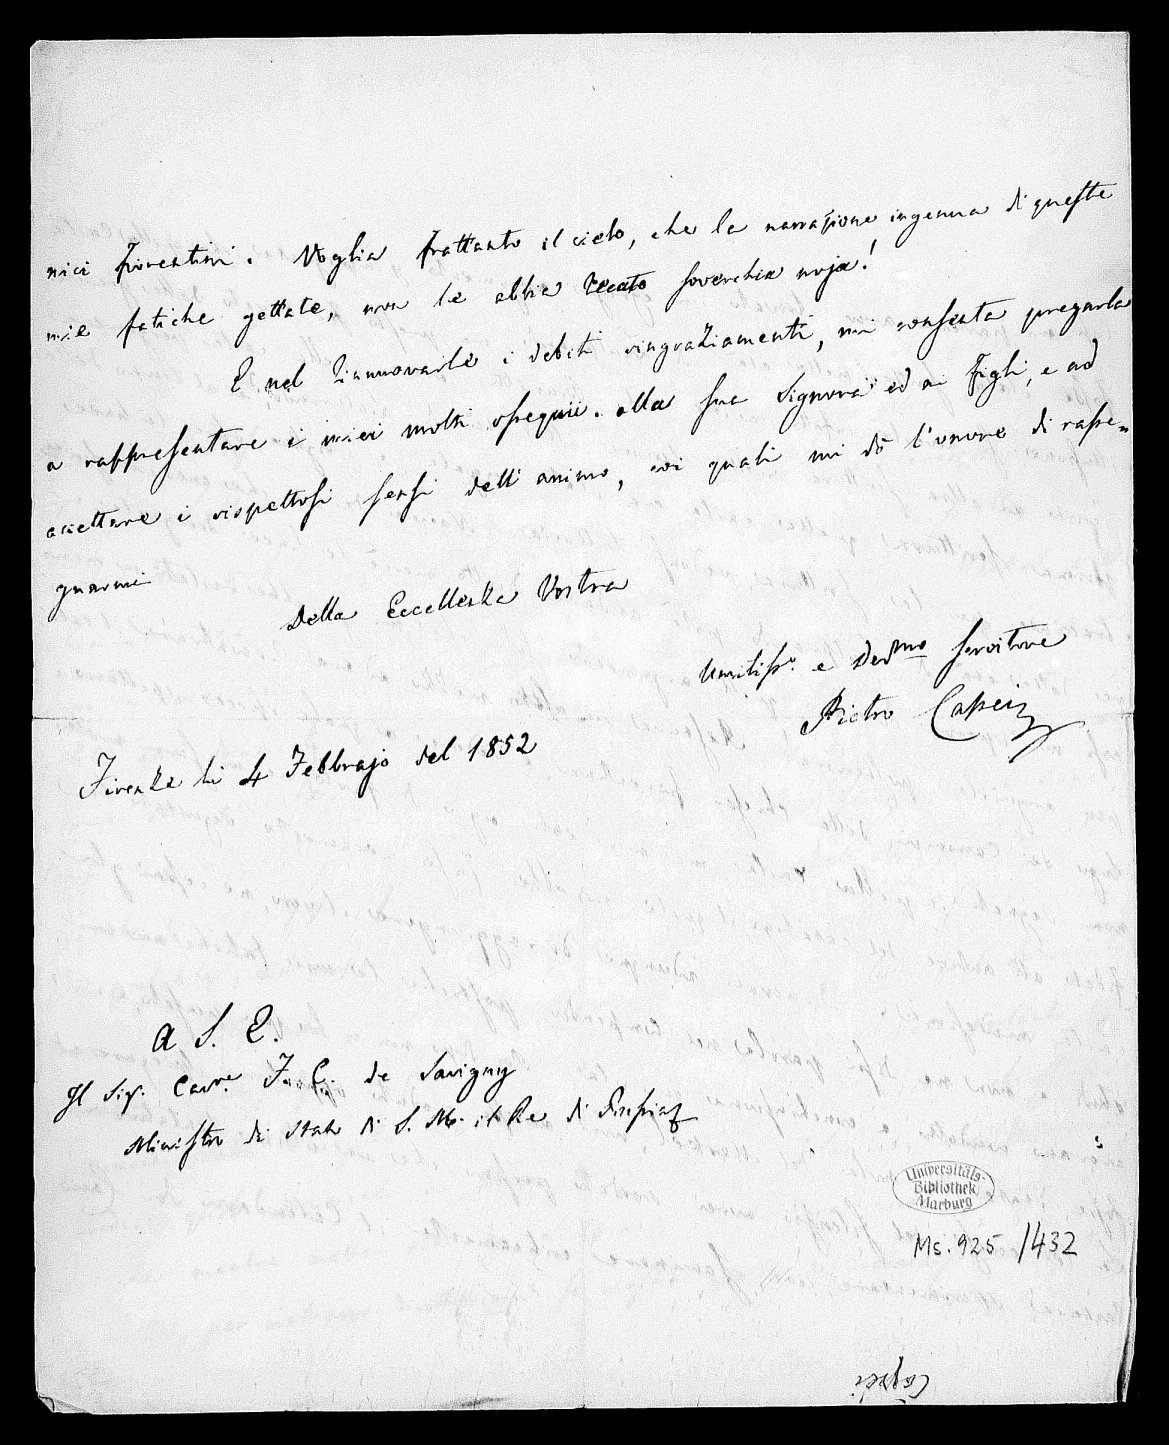 nici fiorentini. Voglia frattanto il cielo, che la narrazione ingenua di queste
mie fatiche gettate, non le abbia recato soverchia noja!
E nel rinnuovarle i debiti ringraziamenti, mi consenta pregarla
a rappresentare i miei molti ossequii alla sua Signora ed ai figli, e ad
accettare i rispettosi sensi dell'animo, coi quali mi dò l'onore di rasse-
gnarmi
Della Eccellenza Vostra
Umiliss.o e Dev.mo servitore
Pietro Capei
Firenze li 4 Febbrajo del 1852
A S. E.
Il Sig. Cav.re F. C. de Savigny
Ministro di Stato di S. M. il Re di Prussia
Universitäts-
Bibliothek
Marburg
Ms. 925/432
Capei